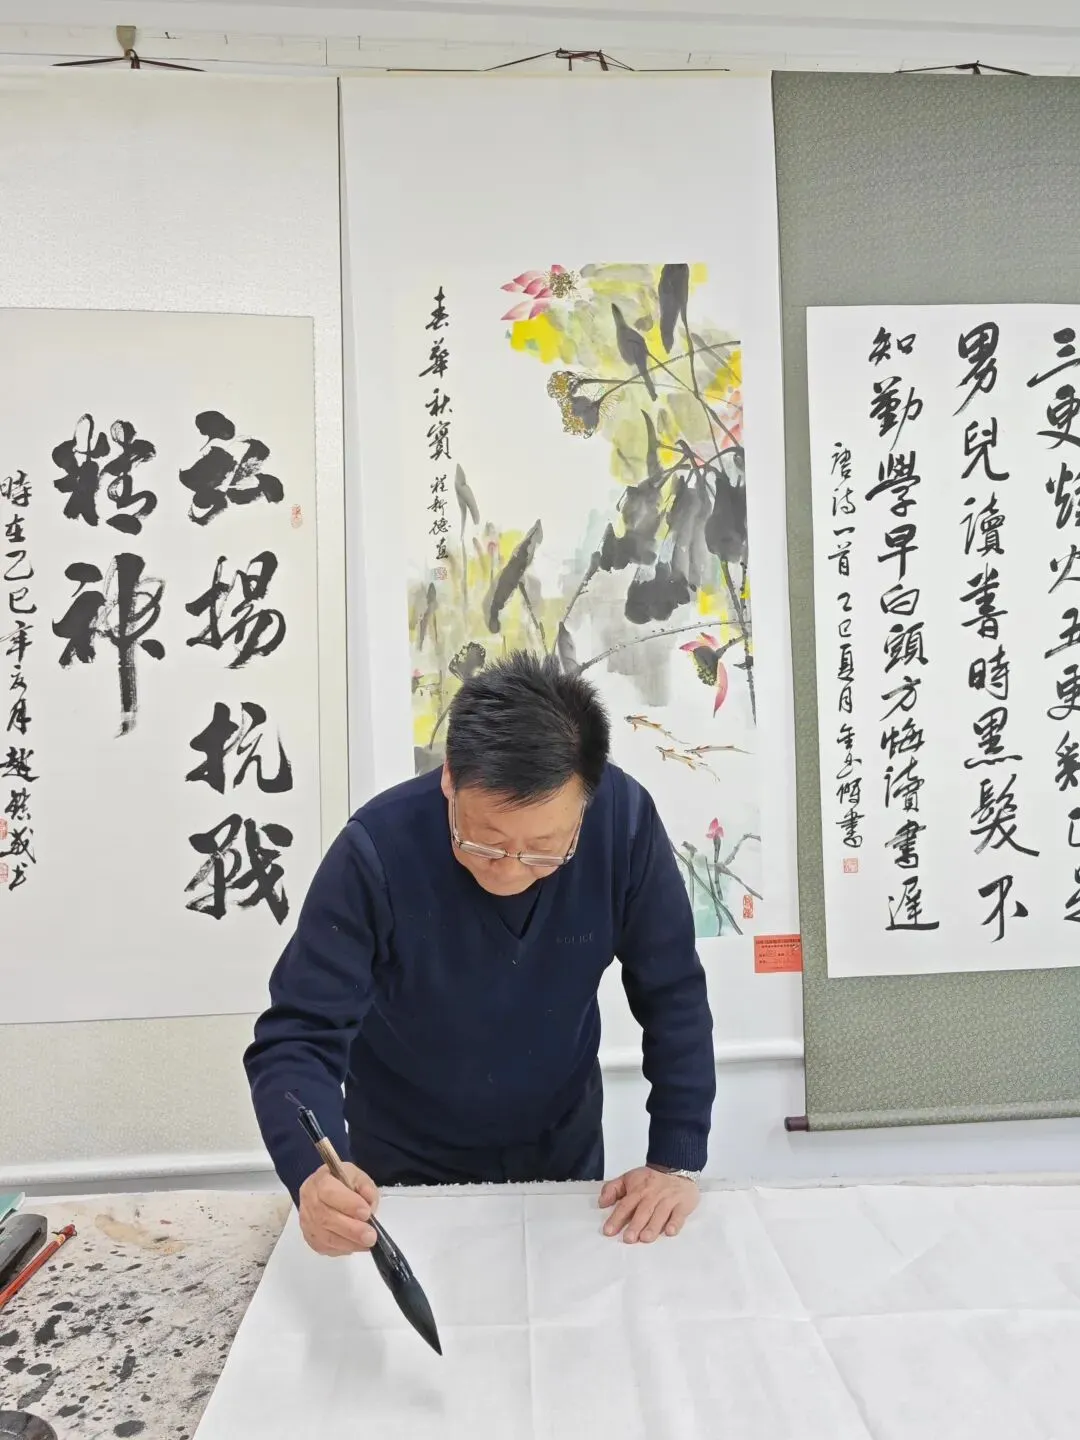 弘揚抗戰
精神
時在乙巳年
春華秋實
程新德画
三更燈火五更雞
男兒讀書時黑髮不
知勤學早白頭方悔讀書遲
唐詩一首 乙巳夏月
POLICE